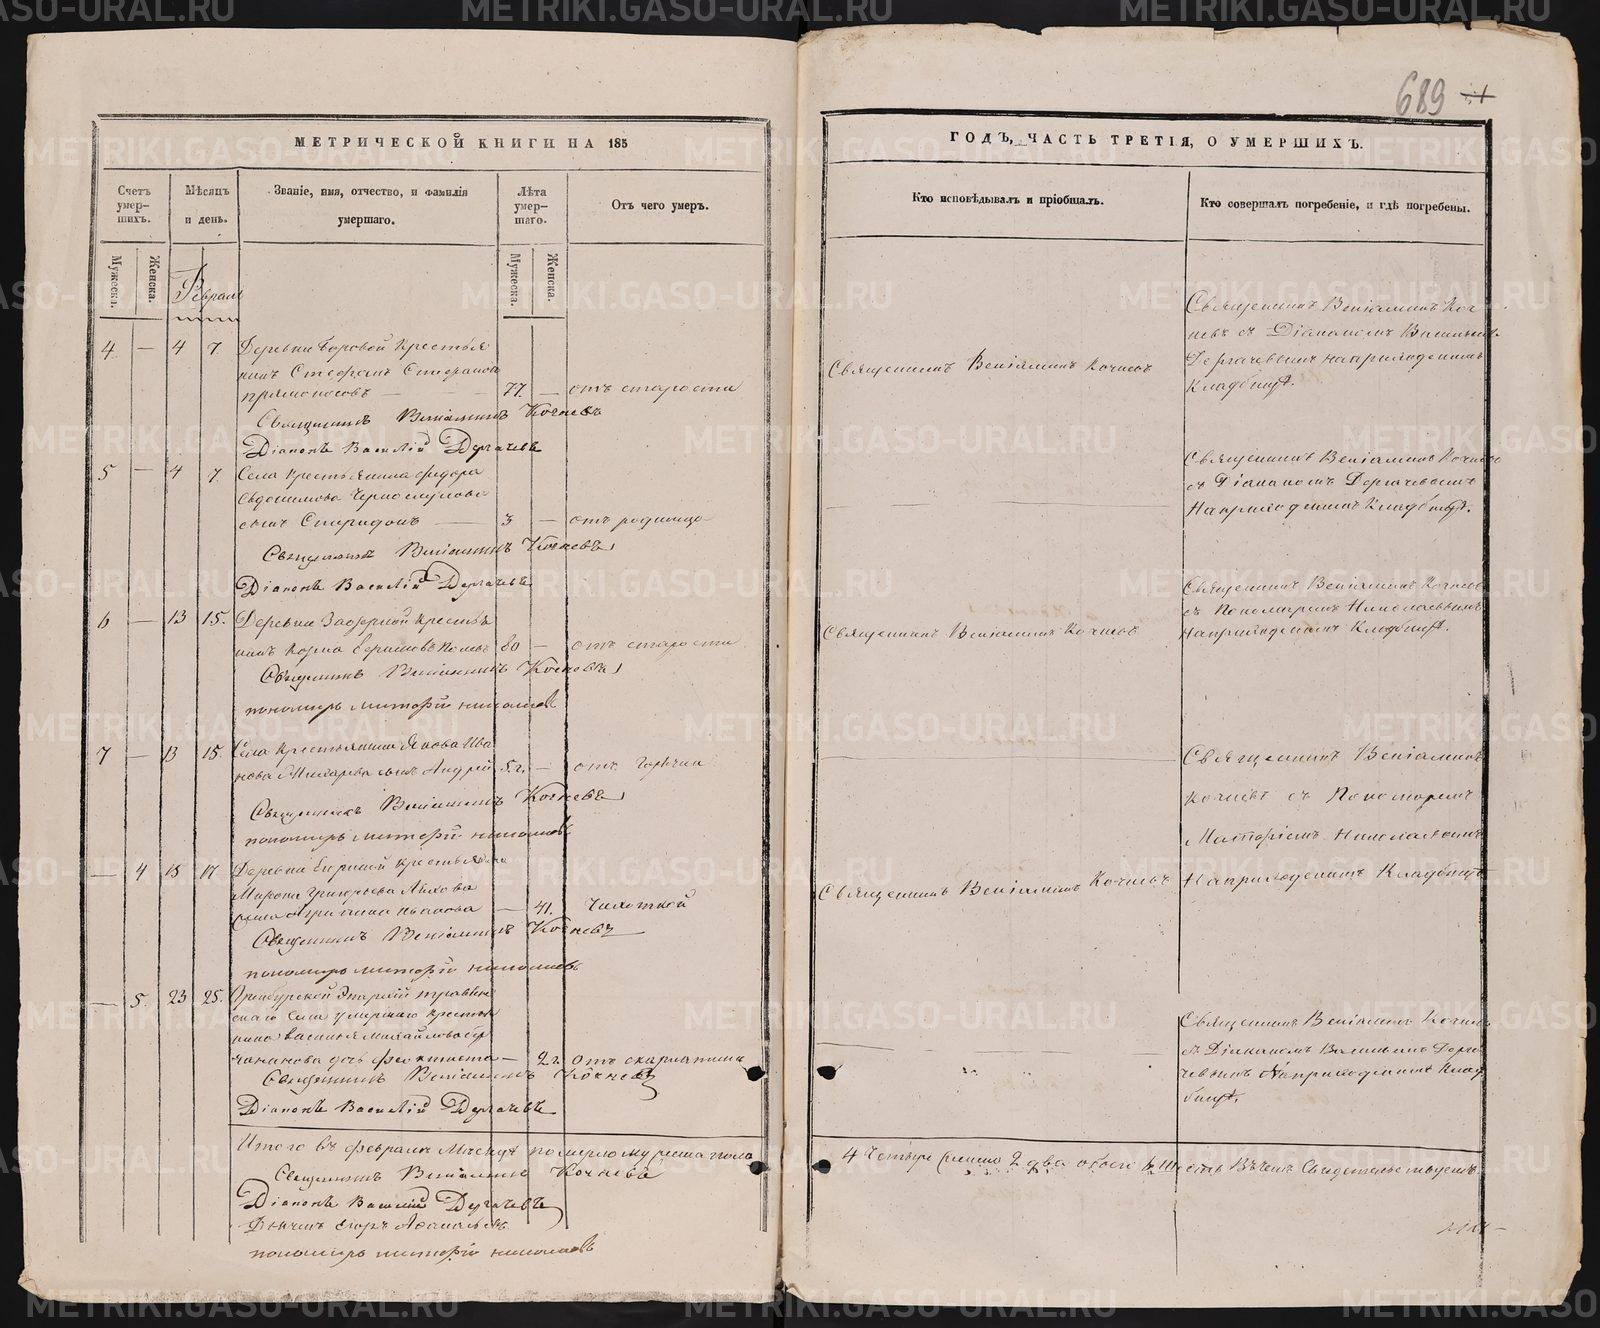 МЕТРИЧЕСКОЙ КНИГИ НА 185
Счетъ умер-шихъ.
Мѣсяцъ и день.
Званіе, имя, отчество, и фамилія умершаго.
Лѣта умер-шаго.
Отъ чего умеръ.
Мужеска.
Женска.
Мужеска.
Женска.
Февраль
4 — 4 7 Деревни Боровой крестья
нинъ Стефанъ Стефановъ
77. — отъ старости
Священникъ Веніаминъ Кочневъ
Діаконъ Василій Дергачевъ
5 — 4 7. Села крестьянина Федора
Евдокимова
сынъ Спиридонъ — 3 — отъ родимца
Священникъ Веніаминъ Кочневъ
Діаконъ Василій Дергачевъ
6 — 13 15. Деревни Заозерной крестья
нинъ 80 — отъ старости
Священникъ Веніаминъ Кочневъ
пономарь николаевъ
7 — 13 15. Села крестьянина Якова Ива
нова сынъ Андрей 5 г. — отъ горячки
Священникъ Веніаминъ Кочневъ
пономарь николаевъ
— 4 15 17 Деревни крестьянина
Мирона Григорьева
— 41. Чахоткой
Священникъ Веніаминъ Кочневъ
пономарь николаевъ
— 5. 23 25. Оренбургской Епархіи
скаго села крестья
нина Василья Михайлова
дочь Феоктиста — 2 г. отъ скарлатины
Священникъ Веніаминъ Кочневъ
Діаконъ Василій Дергачевъ
Итого въ февралѣ Мѣсяцѣ померло мужеска пола
Священникъ Веніаминъ Кочневъ
Діаконъ Василій Дергачевъ
пономарь николаевъ
689
ГОДЪ, ЧАСТЬ ТРЕТІЯ, О УМЕРШИХЪ.
Кто исповѣдывалъ и пріобщалъ.
Кто совершалъ погребеніе, и гдѣ погребены.
Священникъ Веніаминъ Кочневъ
Священникъ Веніаминъ Коч
невъ съ Діакономъ Васильемъ
Дергачевымъ на приходскомъ
Кладбищѣ.
Священникъ Веніаминъ Кочневъ
съ Діакономъ Дергачевымъ
На приходскомъ Кладбищѣ.
Священникъ Веніаминъ Кочневъ
Священникъ Веніаминъ Кочневъ
съ Пономаремъ Николаевымъ
На приходскомъ Кладбищѣ.
Священникъ Веніаминъ
Кочневъ съ Пономаремъ
Николаевымъ
На приходскомъ Кладбищѣ
Священникъ Веніаминъ Кочневъ
Священникъ Веніаминъ Кочневъ
съ Діакономъ Васильемъ Дерга
чевымъ На приходскомъ Клад
бищѣ.
4 Четыре женска 2 два обоего 6 шесть въ чемъ Свидетельствуемъ
METRIKI.GASO-URAL.RU